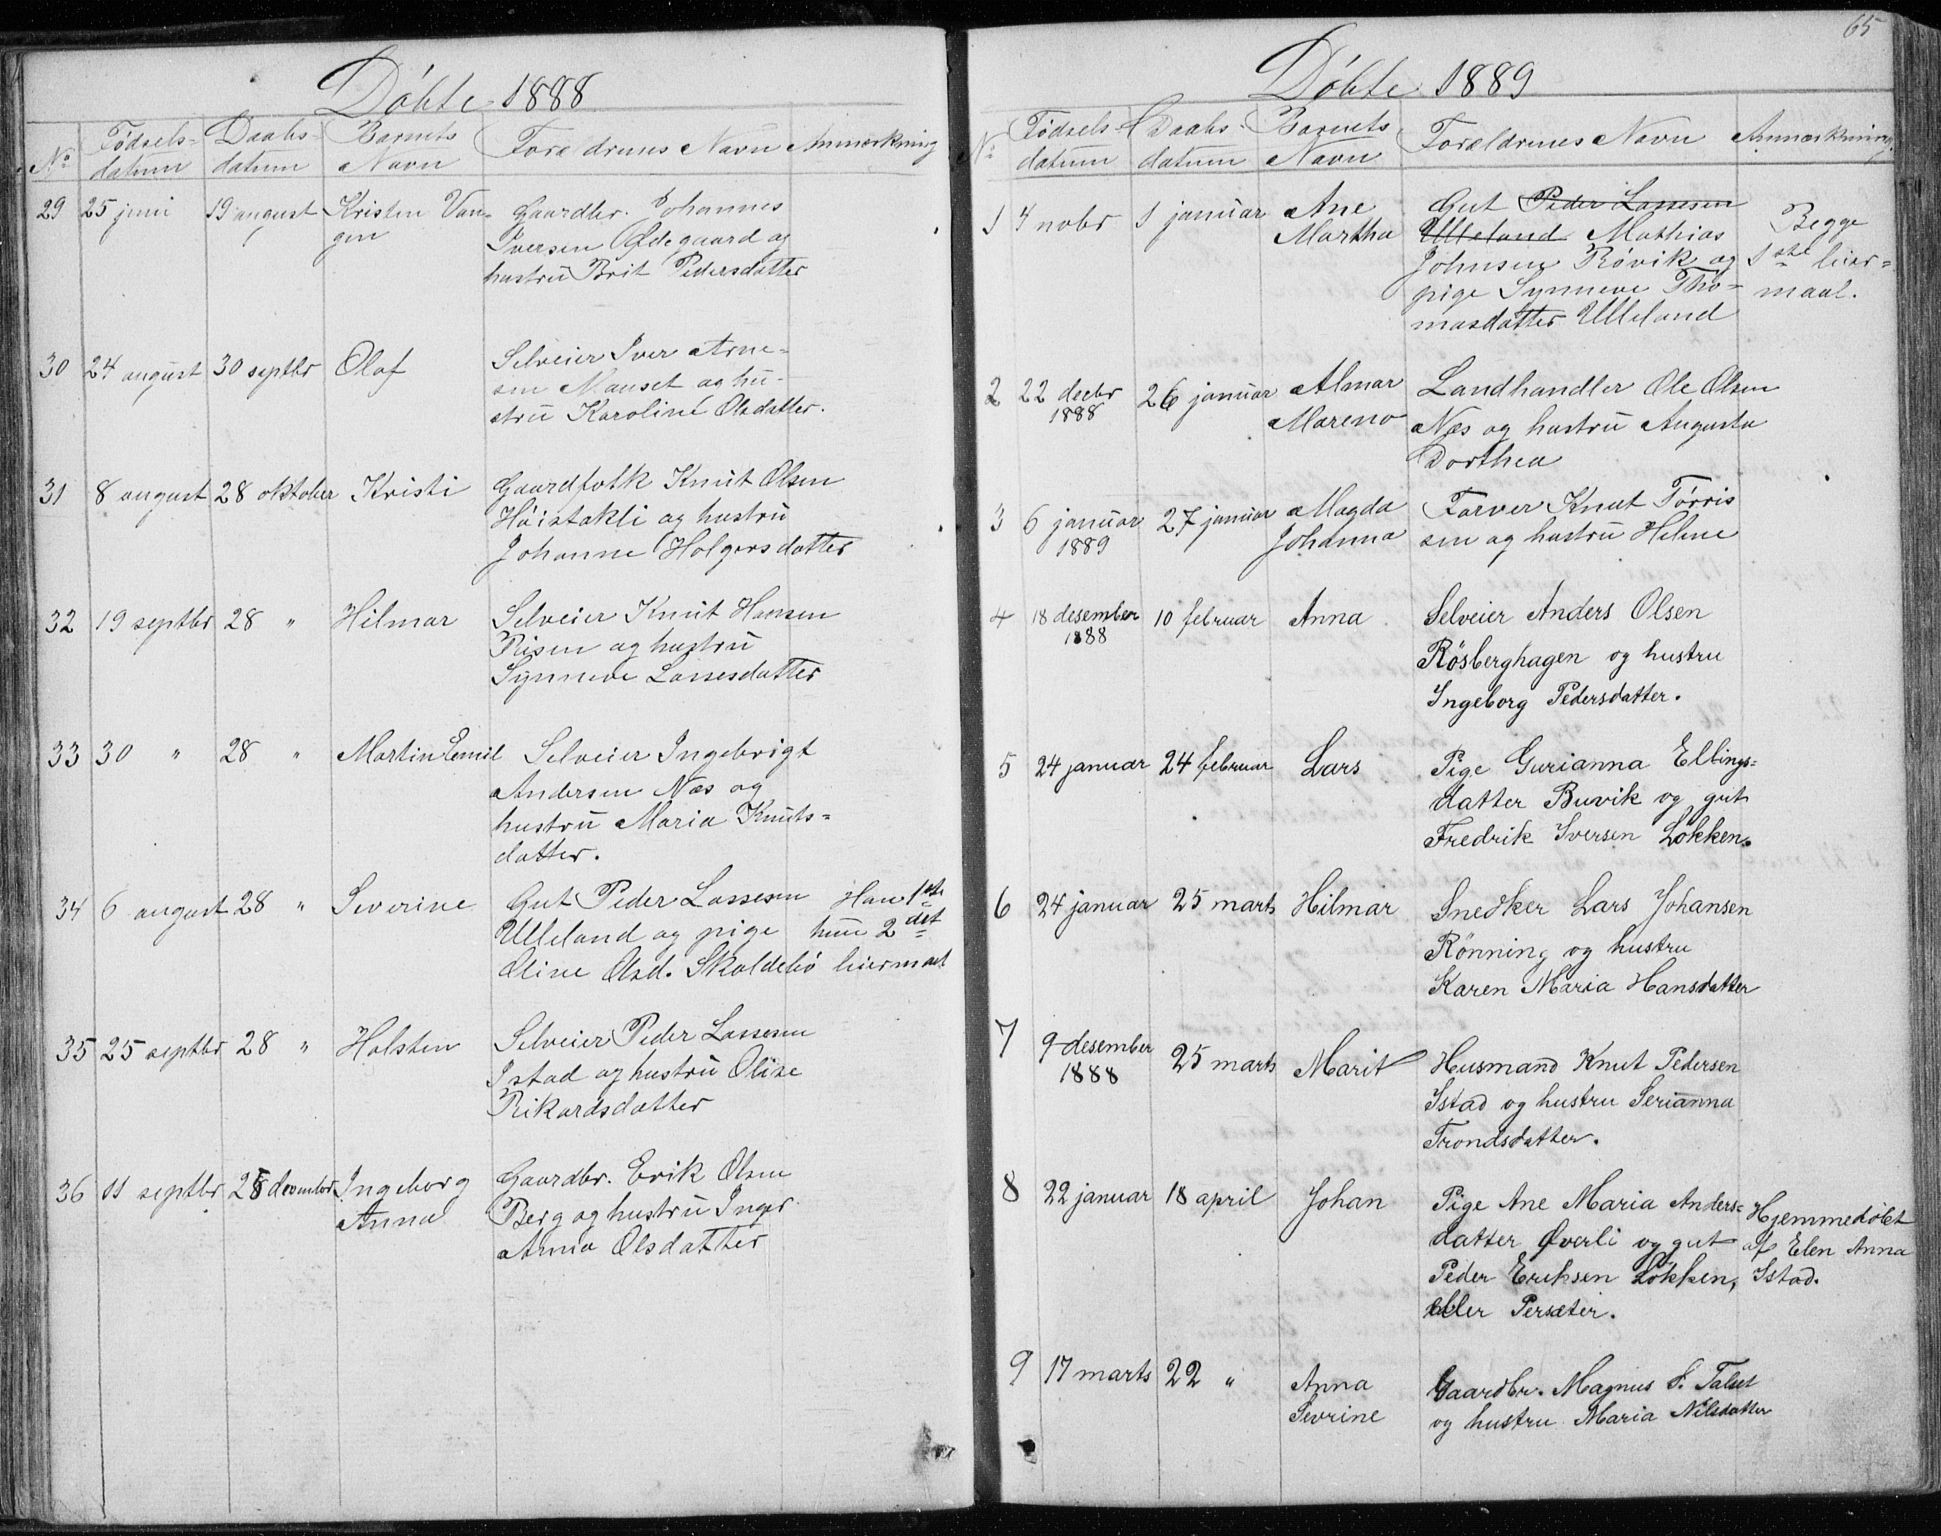 Döbte 1888
No
Fødsels-
datum
Daabs-
datum
Barnets
Navn
Forældrenes Navn
Anmærkning
29 25 juni 19 august Kristen Van-
gen
Gaardbr. Johannes
Iversen Ødegaard og
hustru Brit Pedersdatter
30 24 august 30 septbr Olaf
Selveier Iver Arne-
sen Manset og hu-
stru Karoline Olsdatter.
31 8 august 28 oktober Kristi
Gaardfolk Knut Olsen
Höistakli og hustru
Johanne Holgersdatter
32 19 septbr 28 " Hilmar
Selveier Knut Hansen
Risen og hustru
Synneve Lassesdatter
33 30 " 28 " Martin Emil
Selveier Ingebrigt
Andersen Næs og
hustru Maria Knuts-
datter.
34 6 august 28 " Severine
Gut Peder Lassesen
Ulleland og pige
Oline Olsd. Skaldebö
Han 1ste
hun 2det
leiermaal
35 25 septbr 28 " Halsten
Selveier Peder Lassesen
Istad og hustru Oline
Rikardsdatter
36 11 septbr 26 december Ingeborg
Anna
Gaardbr. Erik Olsen
Berg og hustru Inger
Anna Olsdatter
65
Döbte 1889
No
Fødsels-
datum
Daabs-
datum
Barnets
Navn
Forældrenes Navn
Anmærkning
1 4 nobr 1 januar Ane
Martha
Gut Peder Lassesen
Ulleland Mathias
Johnsen Rövik og
pige Synneve Tho-
masdatter Ulleland
Begge
1ste leier-
maal.
2 22 decbr
1888
26 januar Almar
Mareno
Landhandler Ole Olsen
Næs og hustru Augusta
Dorthea
3 6 januar
1889
27 januar Magda
Johanna
Farver Knut Törris
sen og hustru Helene
4 18 desember
1888
10 februar Anna
Selveier Anders Olsen
Rösberghagen og hustru
Ingeborg Pedersdatter.
5 24 januar 24 februar Lars
Pige Gurianna Ellings-
datter Buvik og gut
Fredrik Iversen Lökken.
6 24 januar 25 marts Hilmar
Snedker Lars Johansen
Rönning og hustru
Karen Maria Hansdatter
7 9 desember
1888
25 marts Marit
Husmand Knut Pedersen
Istad og hustru Serianna
Trondsdatter.
8 22 januar 18 april Johan
Pige Ane Maria Anders-
datter Øverli og gut
Peder Eriksen Lökken,
eller Persæter.
Hjemmedöbt
af Elen Anna
Istad.
9 17 marts 22 " Anna
Sevrine
Gaardbr. Magnus S. Talset
og hustru Maria Nilsdatter